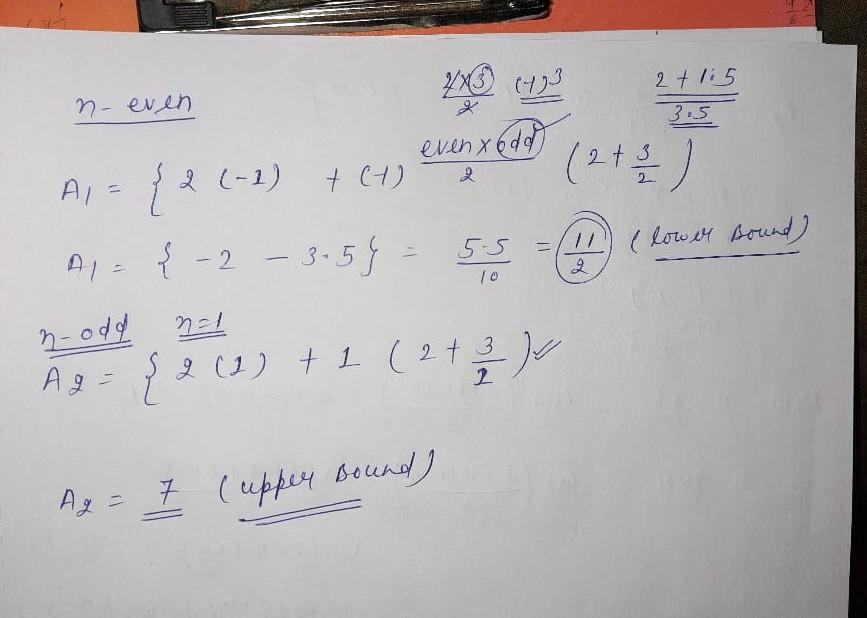 n-even
2×3/2 (-1)^3
2+1.5
3.5
A1 = { 2 (-1) + (-1)^(even×odd/2) (2+3/2)
A1 = { -2 - 3.5} = 5.5/10 = 11/2 (lower Bound)
n-odd n=1
A2 = { 2 (1) + 1 (2+3/2)
A2 = 7 (upper Bound)